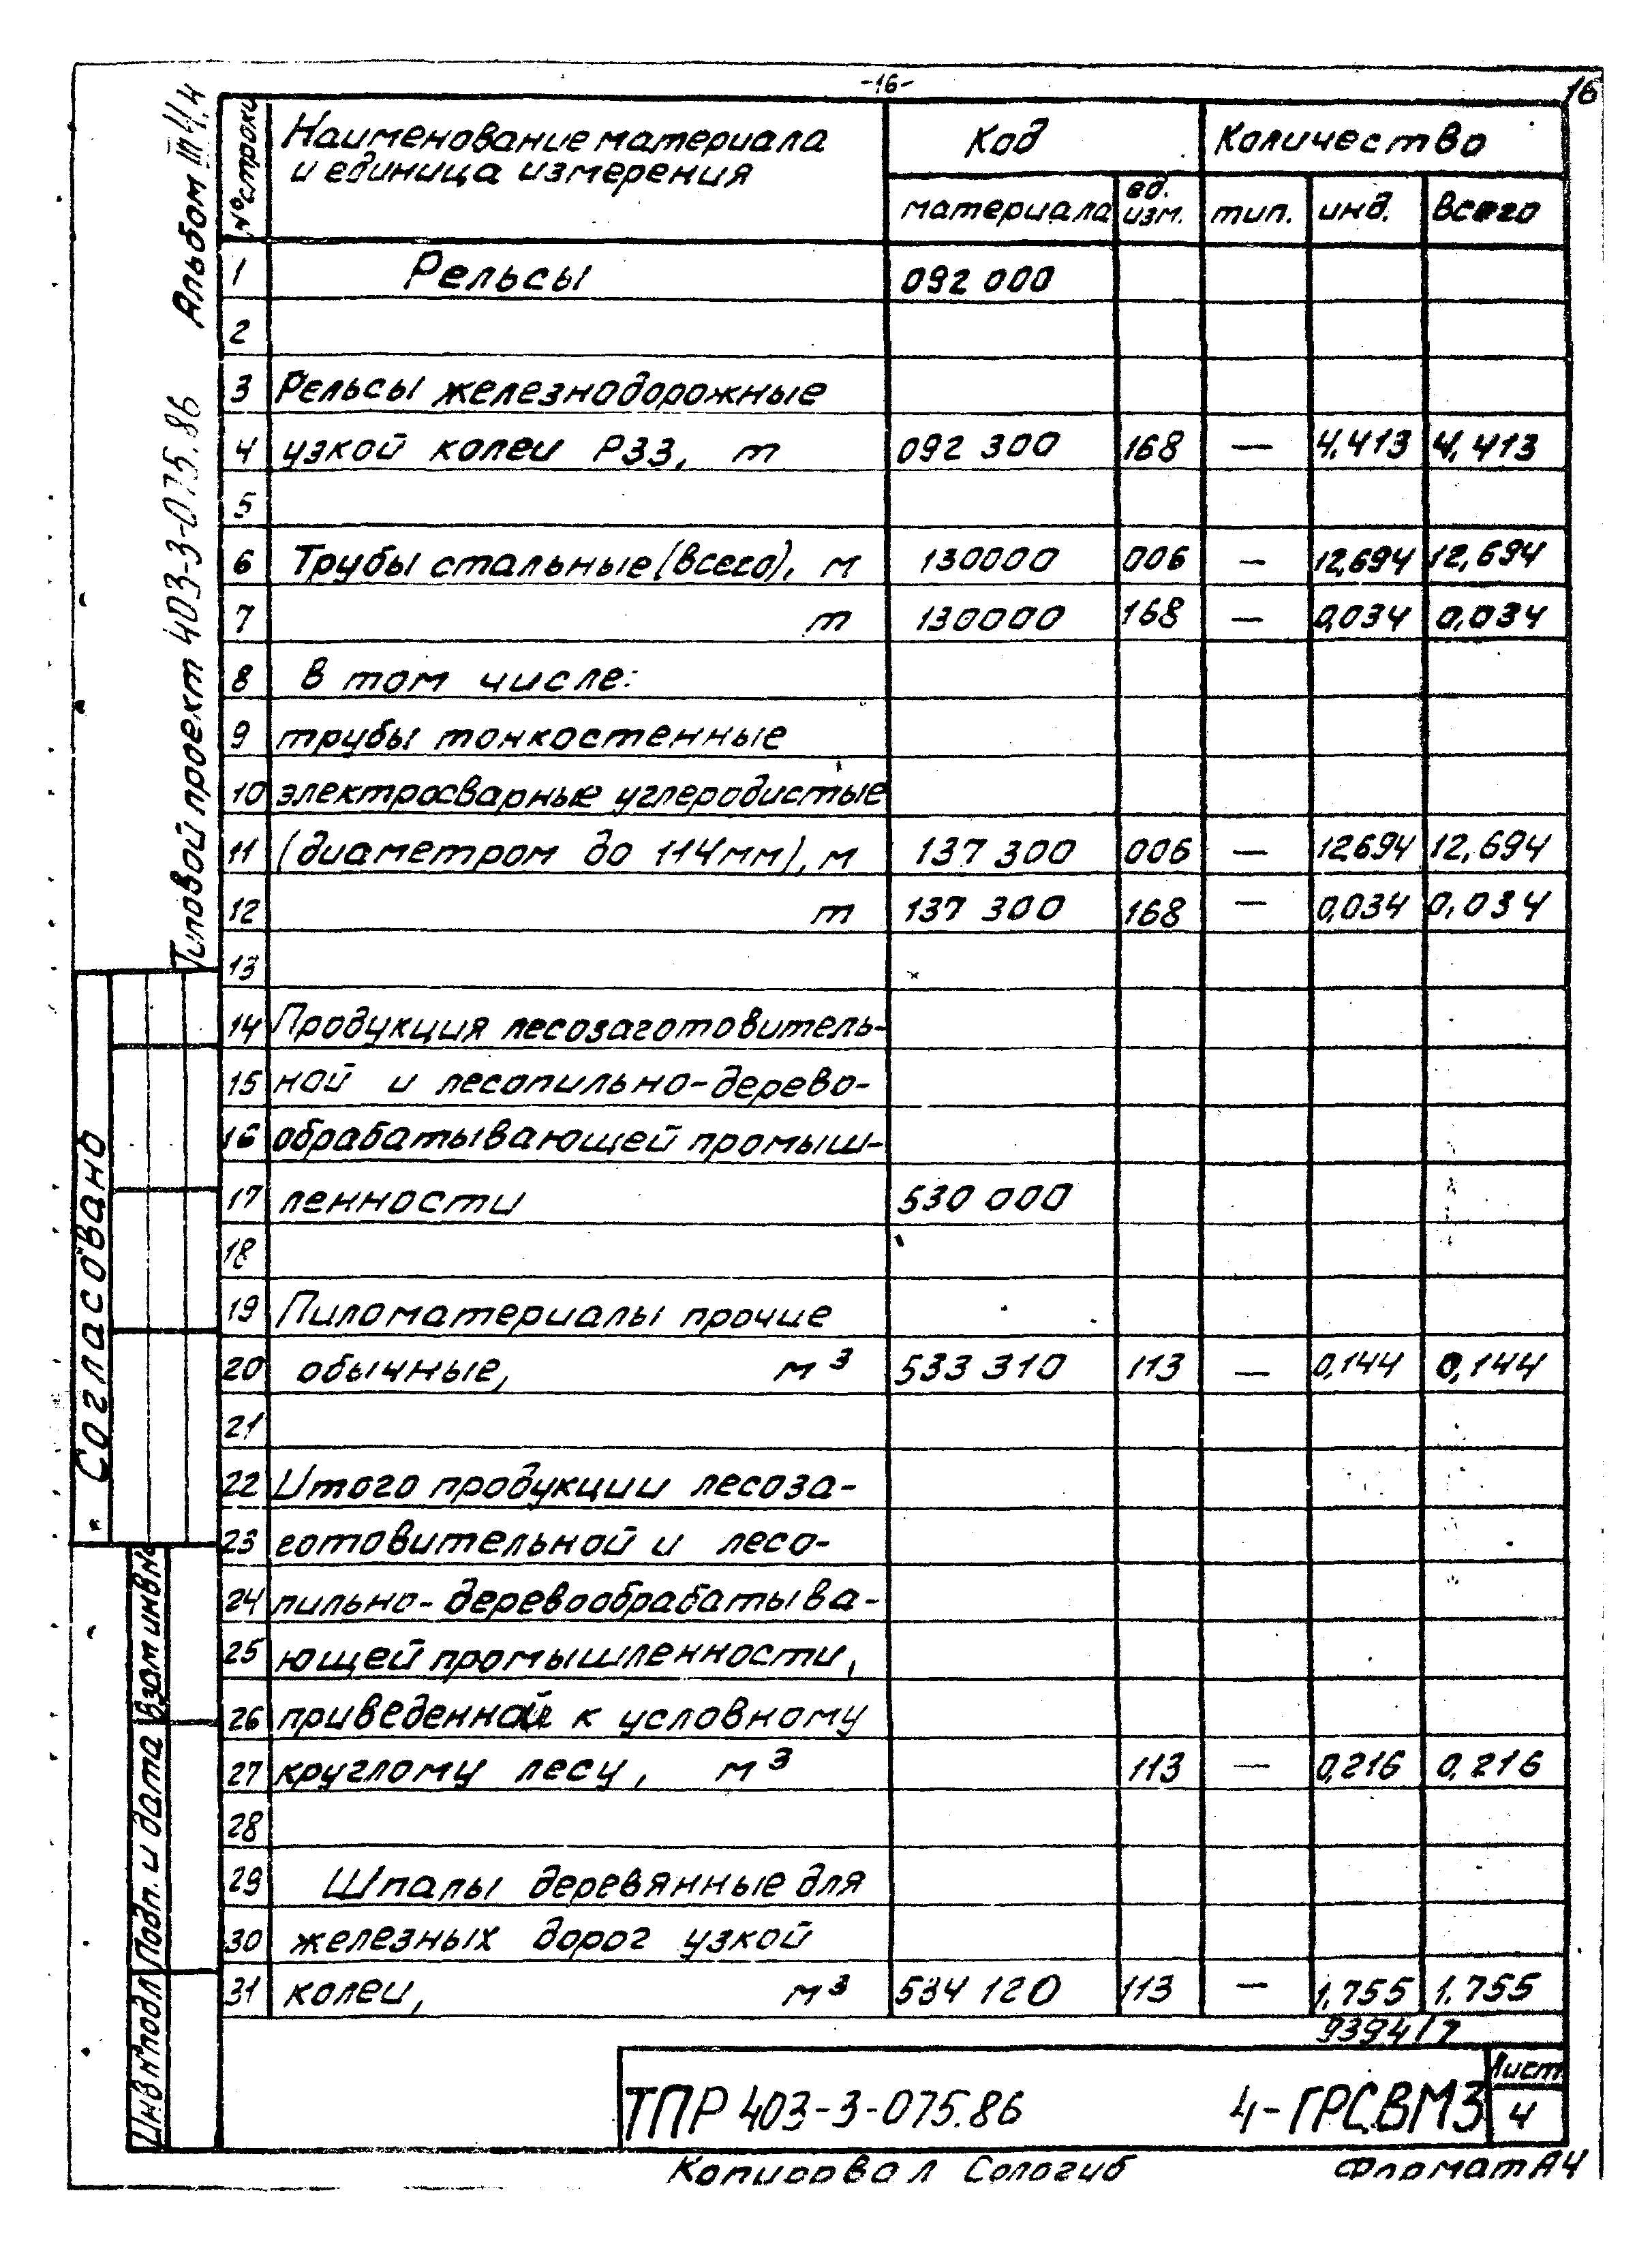 -16-
16
Альбом III ч.4
Типовой проект 403-3-075.86
№ строки
Наименование материала
и единица измерения
Код
Количество
материала
ед.
изм.
тип.
инд.
всего
1 Рельсы 092 000
2
3 Рельсы железнодорожные
4 узкой колеи Р33, т 092 300 168 — 4,413 4,413
5
6 Трубы стальные (всего), м 130000 006 — 12,694 12,694
7 т 130000 168 — 0,034 0,034
8 в том числе:
9 трубы тонкостенные
10 электросварные углеродистые
11 (диаметром до 114мм), м 137 300 006 — 12694 12,694
12 т 137 300 168 — 0,034 0,034
13
14 Продукция лесозаготовитель-
15 ной и лесопильно-дерево-
16 обрабатывающей промыш-
17 ленности 530 000
18
19 Пиломатериалы прочие
20 обычные, м³ 533 310 113 — 0,144 0,144
21
22 Итого продукции лесоза-
23 готовительной и лесо-
24 пильно-деревообрабатыва-
25 ющей промышленности,
26 приведенной к условному
27 круглому лесу, м³ 113 — 0,216 0,216
28
29 Шпалы деревянные для
30 железных дорог узкой
31 колеи, м³ 534 120 113 — 1,755 1.755
Согласовано
Взам инв№
Подп. и дата
Инв№подл
9394/7
ТПР 403-3-075.86 4-ГРС.ВМ3
Лист
4
Копировал Сологиб Формат А4